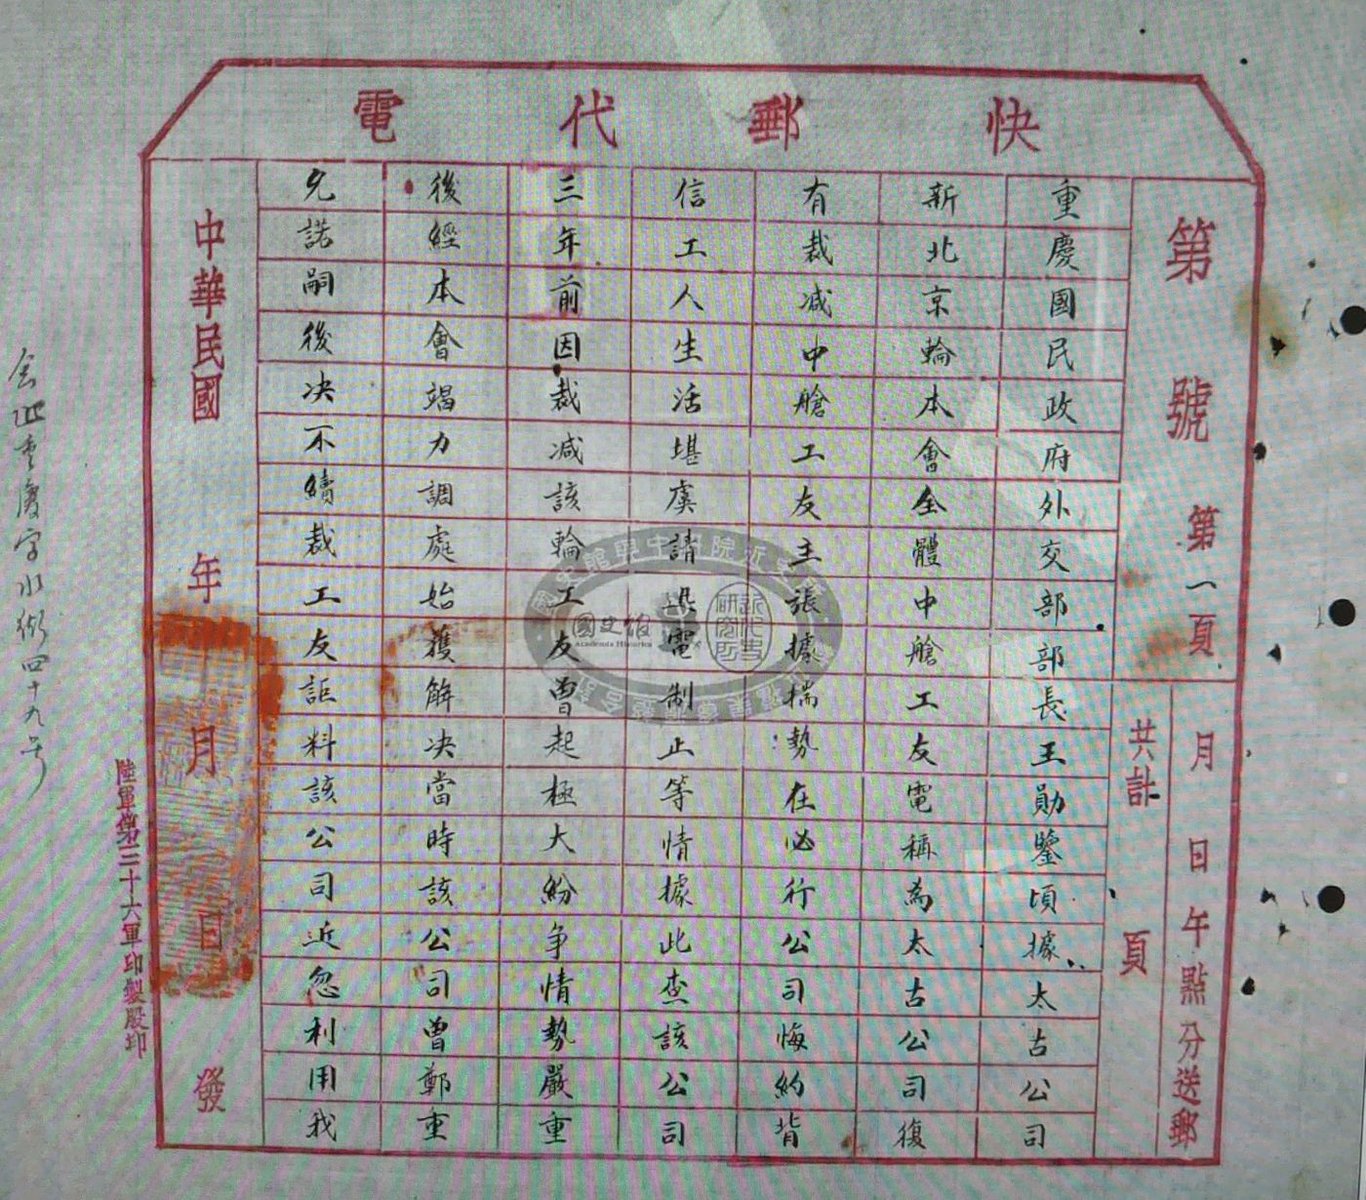 快郵代電
第 號 第一頁
月 日 午 點 分 送郵
共計 頁
重慶國民政府外交部部長王勛鑒頃據太古公司
新北京輪本會全體中艙工友電稱為太古公司復
有裁減中艙工友主張據揣勢在必行公司悔約背
信工人生活堪虞請迅電制止等情據此查該公司
三年前因裁減該輪工友曾起極大紛爭情勢嚴重
後經本會竭力調處始獲解決當時該公司曾鄭重
允諾嗣後決不續裁工友詎料該公司近忽利用我
中華民國 年 月 日 發
陸軍第三十六軍印製股印
重慶字水街四十九号
國史館
Academia Historica